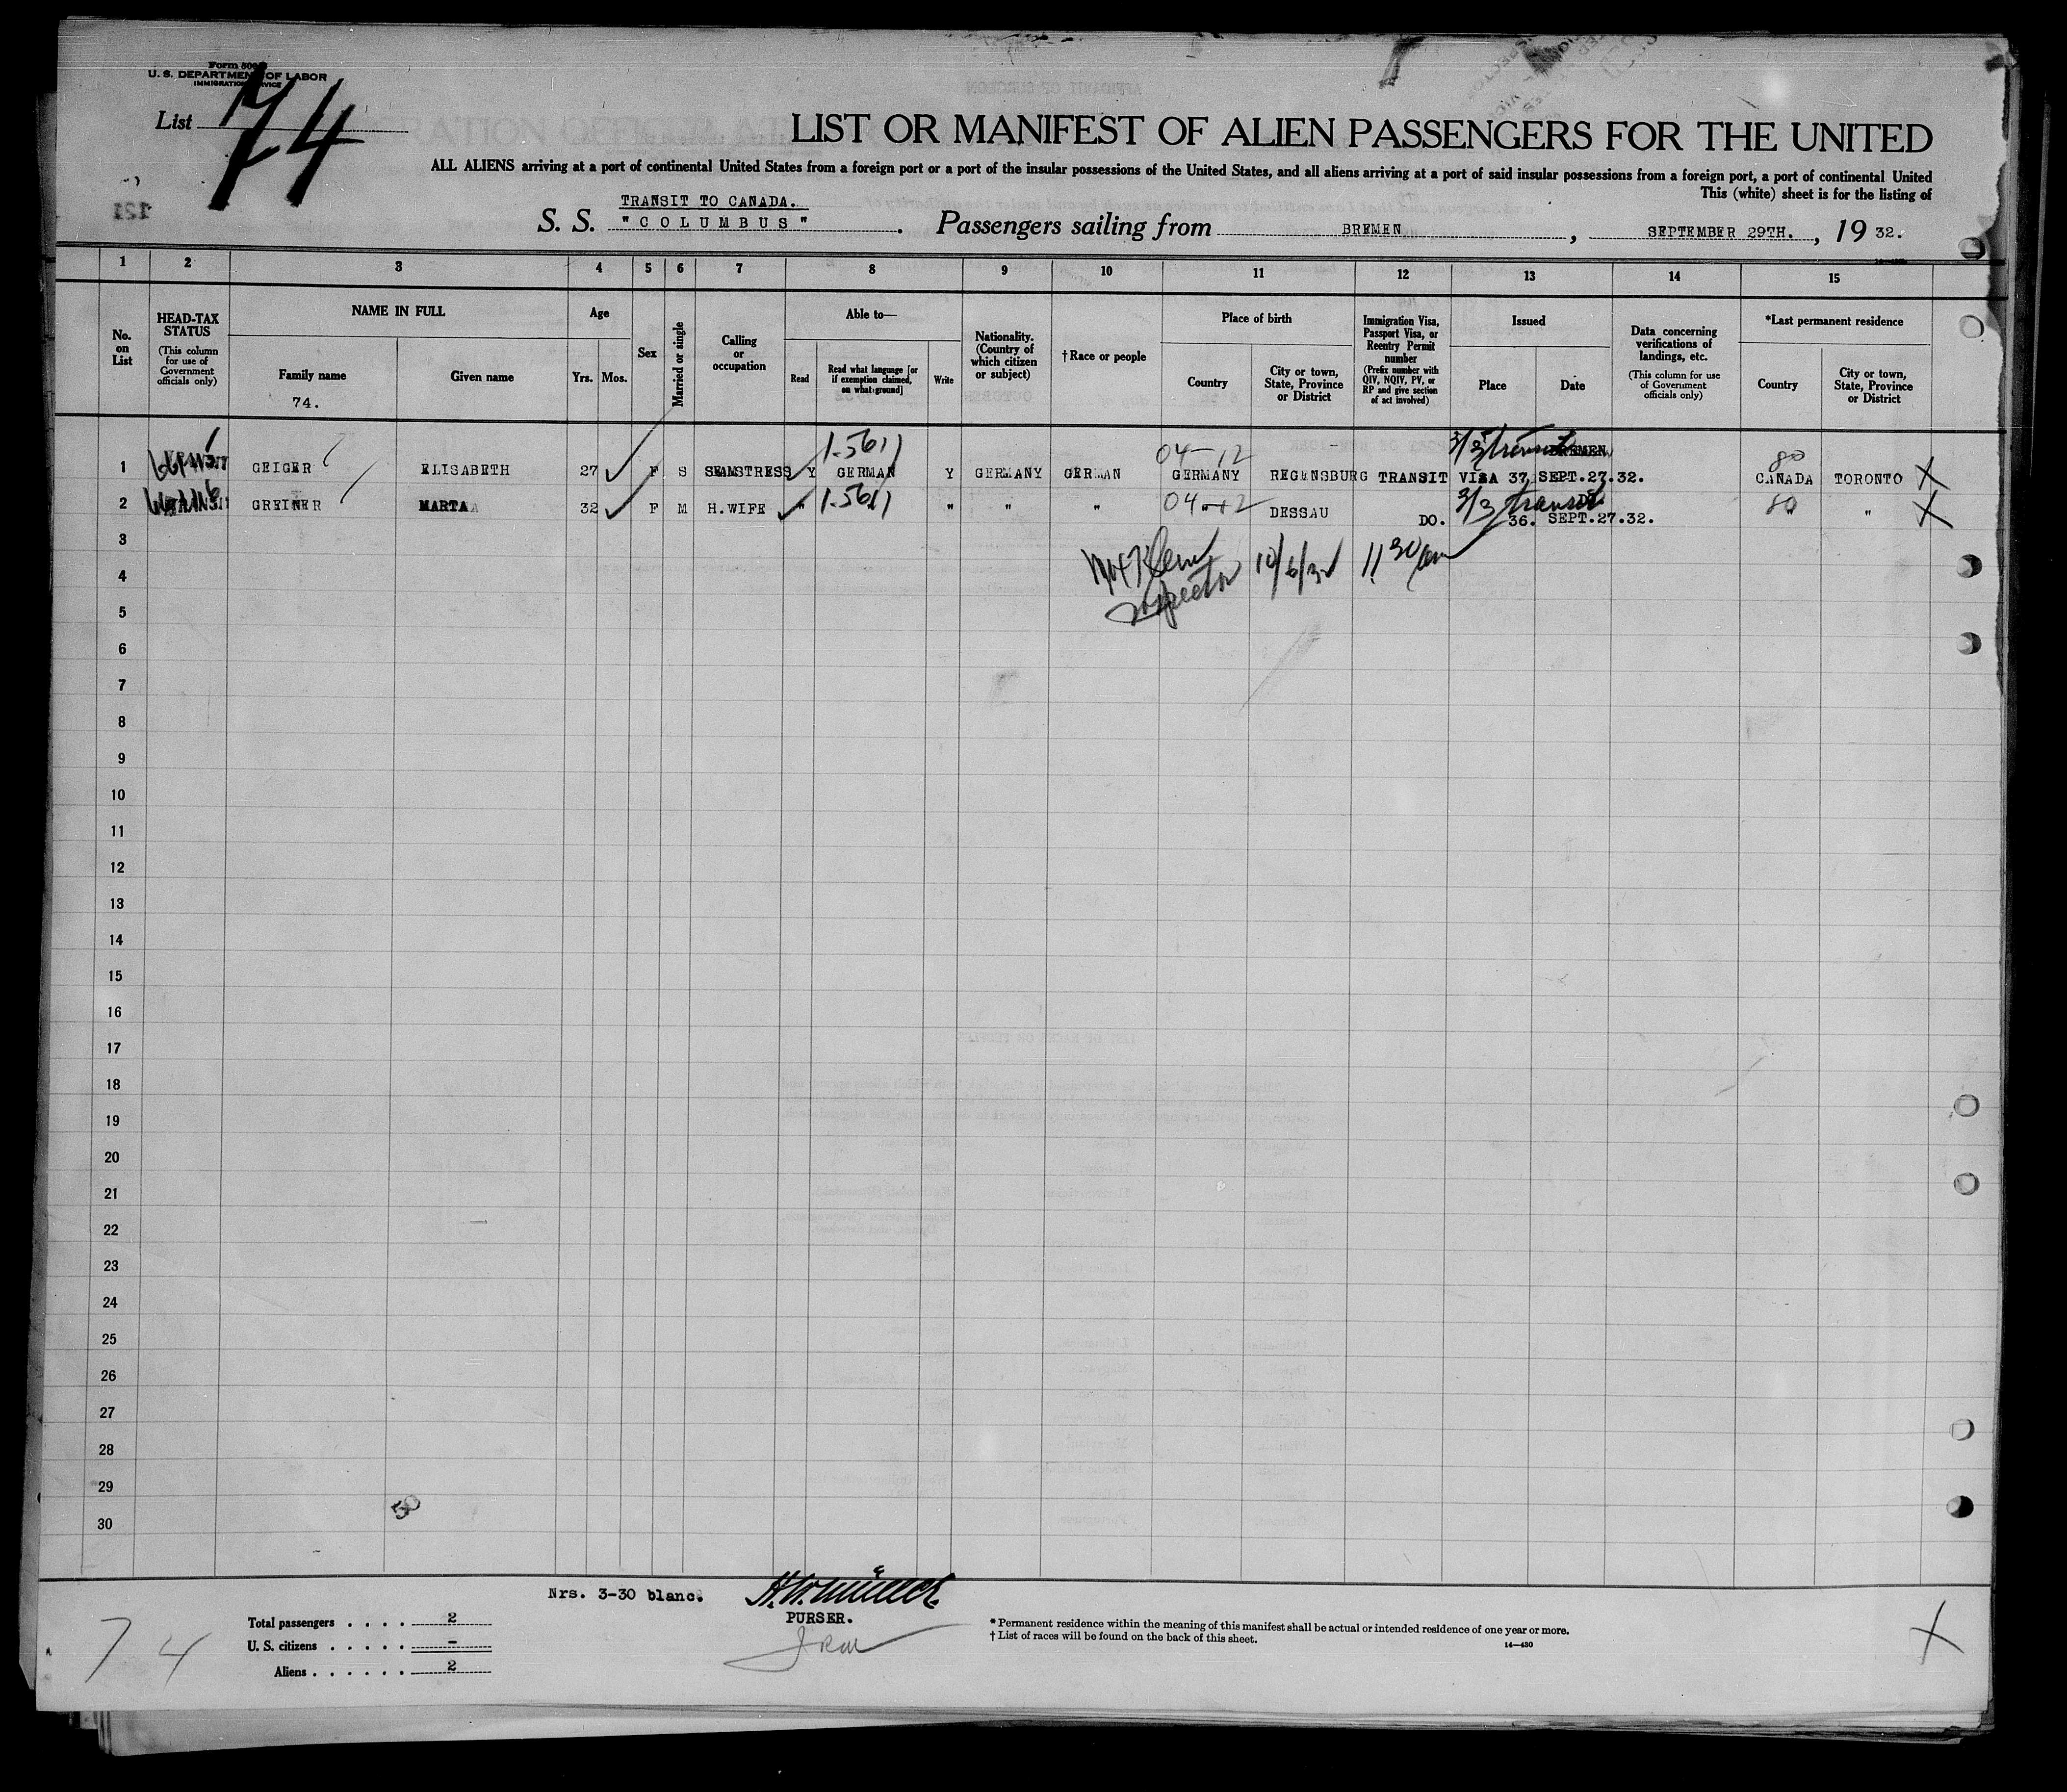 Form 500
U. S. DEPARTMENT OF LABOR
IMMIGRATION SERVICE
List 74
LIST OR MANIFEST OF ALIEN PASSENGERS FOR THE UNITED
ALL ALIENS arriving at a port of continental United States from a foreign port or a port of the insular possessions of the United States, and all aliens arriving at a port of said insular possessions from a foreign port, a port of continental United
This (white) sheet is for the listing of
TRANSIT TO CANADA.
S. S. "COLUMBUS". Passengers sailing from BREMEN, SEPTEMBER 29TH., 19 32.
1 2 3 4 5 6 7 8 9 10 11 12 13 14 15
No. on List
HEAD-TAX STATUS (This column for use of Government officials only)
NAME IN FULL
Family name
74.
Given name
Age
Yrs. Mos.
Sex
Married or single
Calling or occupation
Able to—
Read
Read what language [or if exemption claimed, on what ground]
Write
Nationality. (Country of which citizen or subject)
†Race or people
Place of birth
Country
City or town, State, Province or District
Immigration Visa, Passport Visa, or Reentry Permit number (Prefix number with QIV, NQIV, PV, or RP and give section of act involved)
Issued
Place
Date
Data concerning verifications of landings, etc. (This column for use of Government officials only)
*Last permanent residence
Country
City or town, State, Province or District
1-5611 04-12 3/3 transit BREMEN 80
1 GEIGER ELISABETH 27 F S SEAMSTRESS Y GERMAN Y GERMANY GERMAN GERMANY REGENSBURG TRANSIT VISA 37, SEPT.27.32. CANADA TORONTO X
1-5611 04-12 3/3 transit DO. 80
2 GREINER MARTA 32 F M H.WIFE " " " " " DESSAU DO. 36. SEPT.27.32. " " X
Inspector 10/6/32 11 30 am
3
4
5
6
7
8
9
10
11
12
13
14
15
16
17
18
19
20
21
22
23
24
25
26
27
28
29
30
Nrs. 3-30 blanc.
H. W. Müller
PURSER.
Total passengers . . . . 2
U. S. citizens . . . . . –
Aliens . . . . . . 2
74
* Permanent residence within the meaning of this manifest shall be actual or intended residence of one year or more.
† List of races will be found on the back of this sheet.
14—430
X